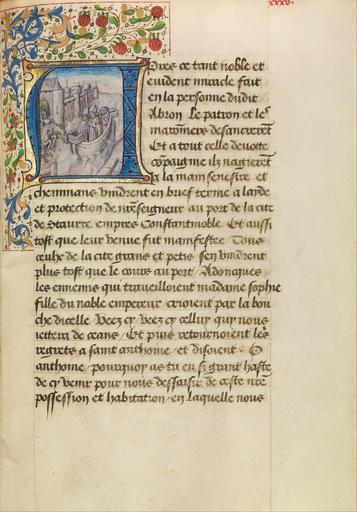 xxxv.
Pres ce tant noble et
euident miracle fait
en la personne dudit
Abron Le patron et les
maronniers desancrerent
Et a tout celle deuote
compaignie ilz nagierent
a la main senestre et
cheminans vindrent en brief terme a layde
et protection de nostre seigneur au port de la cite
de empire Constantinoble Et aussi
tost que leur venue fut manifestee Tous
ceulx de la cite grans et petis sen vindrent
plus tost que le cours au port Adoncques
les ennemis qui traueilloient madame sophie
fille du noble empereur crioient par la bou
che dicelle Veez cy veez celluy qui nous
iettera de ceans Et puis retournoient les
regrets a saint anthoine et disoient O
anthoine pourquoy as tu eu si grant haste
de cy venir pour nous dessaisir de ceste nostre
possession et habitation en laquelle nous